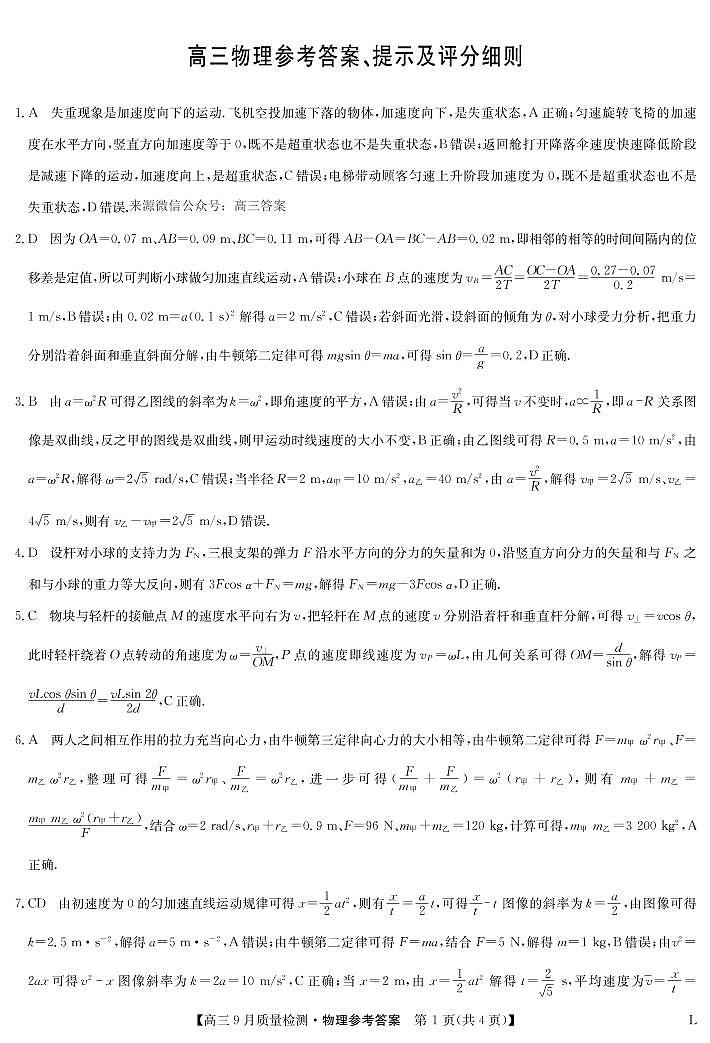 高三物理参考答案、提示及评分细则
1. A 失重现象是加速度向下的运动. 飞机空投加速下落的物体,加速度向下,是失重状态,A 正确;匀速旋转飞椅的加速
度在水平方向,竖直方向加速度等于 0,既不是超重状态也不是失重状态,B 错误;返回舱打开降落伞速度快速降低阶段
是减速下降的运动,加速度向上,是超重状态,C 错误;电梯带动顾客匀速上升阶段加速度为 0,既不是超重状态也不是
失重状态,D 错误.来源微信公众号:高三答案
2. D 因为 OA=0.07 m、AB=0.09 m、BC=0.11 m,可得 AB-OA=BC-AB=0.02 m,即相邻的相等的时间间隔内的位
移差是定值,所以可判断小球做匀加速直线运动,A 错误;小球在 B 点的速度为 v_B=AC/2T=(OC-OA)/2T=(0.27-0.07)/0.2 m/s=
1 m/s,B 错误;由 0.02 m=a(0.1 s)² 解得 a=2 m/s²,C 错误;若斜面光滑,设斜面的倾角为 θ,对小球受力分析,把重力
分别沿着斜面和垂直斜面分解,由牛顿第二定律可得 mgsin θ=ma,可得 sin θ=a/g=0.2,D 正确.
3. B 由 a=ω²R 可得乙图线的斜率为 k=ω²,即角速度的平方,A 错误;由 a=v²/R,可得当 v 不变时,a∝1/R,即 a-R 关系图
像是双曲线,反之甲的图线是双曲线,则甲运动时线速度的大小不变,B 正确;由乙图线可得 R=0.5 m,a=10 m/s²,由
a=ω²R,解得 ω=2√5 rad/s,C 错误;当半径 R=2 m,a甲=10 m/s²,a乙=40 m/s²,由 a=v²/R,解得 v甲=2√5 m/s、v乙=
4√5 m/s,则有 v乙-v甲=2√5 m/s,D 错误.
4. D 设杆对小球的支持力为 F_N,三根支架的弹力 F 沿水平方向的分力的矢量和为 0,沿竖直方向分力的矢量和与 F_N 之
和与小球的重力等大反向,则有 3Fcos α+F_N=mg,解得 F_N=mg-3Fcos α,D 正确.
5. C 物块与轻杆的接触点 M 的速度水平向右为 v,把轻杆在 M 点的速度 v 分别沿着杆和垂直杆分解,可得 v⊥=vcos θ,
此时轻杆绕着 O 点转动的角速度为 ω=v⊥/OM,P 点的速度即线速度为 v_P=ωL,由几何关系可得 OM=d/sin θ,解得 v_P=
vLcos θsin θ/d=vLsin 2θ/2d,C 正确.
6. A 两人之间相互作用的拉力充当向心力,由牛顿第三定律向心力的大小相等,由牛顿第二定律可得 F=m甲 ω²r甲、F=
m乙 ω²r乙,整理可得 F/m甲=ω²r甲、F/m乙=ω²r乙,进一步可得(F/m甲+F/m乙)=ω²(r甲+r乙),则有 m甲+m乙=
m甲 m乙 ω²(r甲+r乙)/F,结合 ω=2 rad/s、r甲+r乙=0.9 m、F=96 N、m甲+m乙=120 kg,计算可得,m甲 m乙=3 200 kg²,A
正确.
7. CD 由初速度为 0 的匀加速直线运动规律可得 x=1/2 at²,则有 x/t=a/2 t,可得 x/t-t 图像的斜率为 k=a/2,由图像可得
k=2.5 m·s⁻²,解得 a=5 m·s⁻²,A 错误;由牛顿第二定律可得 F=ma,结合 F=5 N,解得 m=1 kg,B 错误;由 v²=
2ax 可得 v²-x 图像斜率为 k=2a=10 m/s²,C 正确;当 x=2 m,由 x=1/2 at² 解得 t=2/√5 s,平均速度为 v̄=x/t=
【高三 9 月质量检测·物理参考答案 第 1 页(共 4 页)】 L